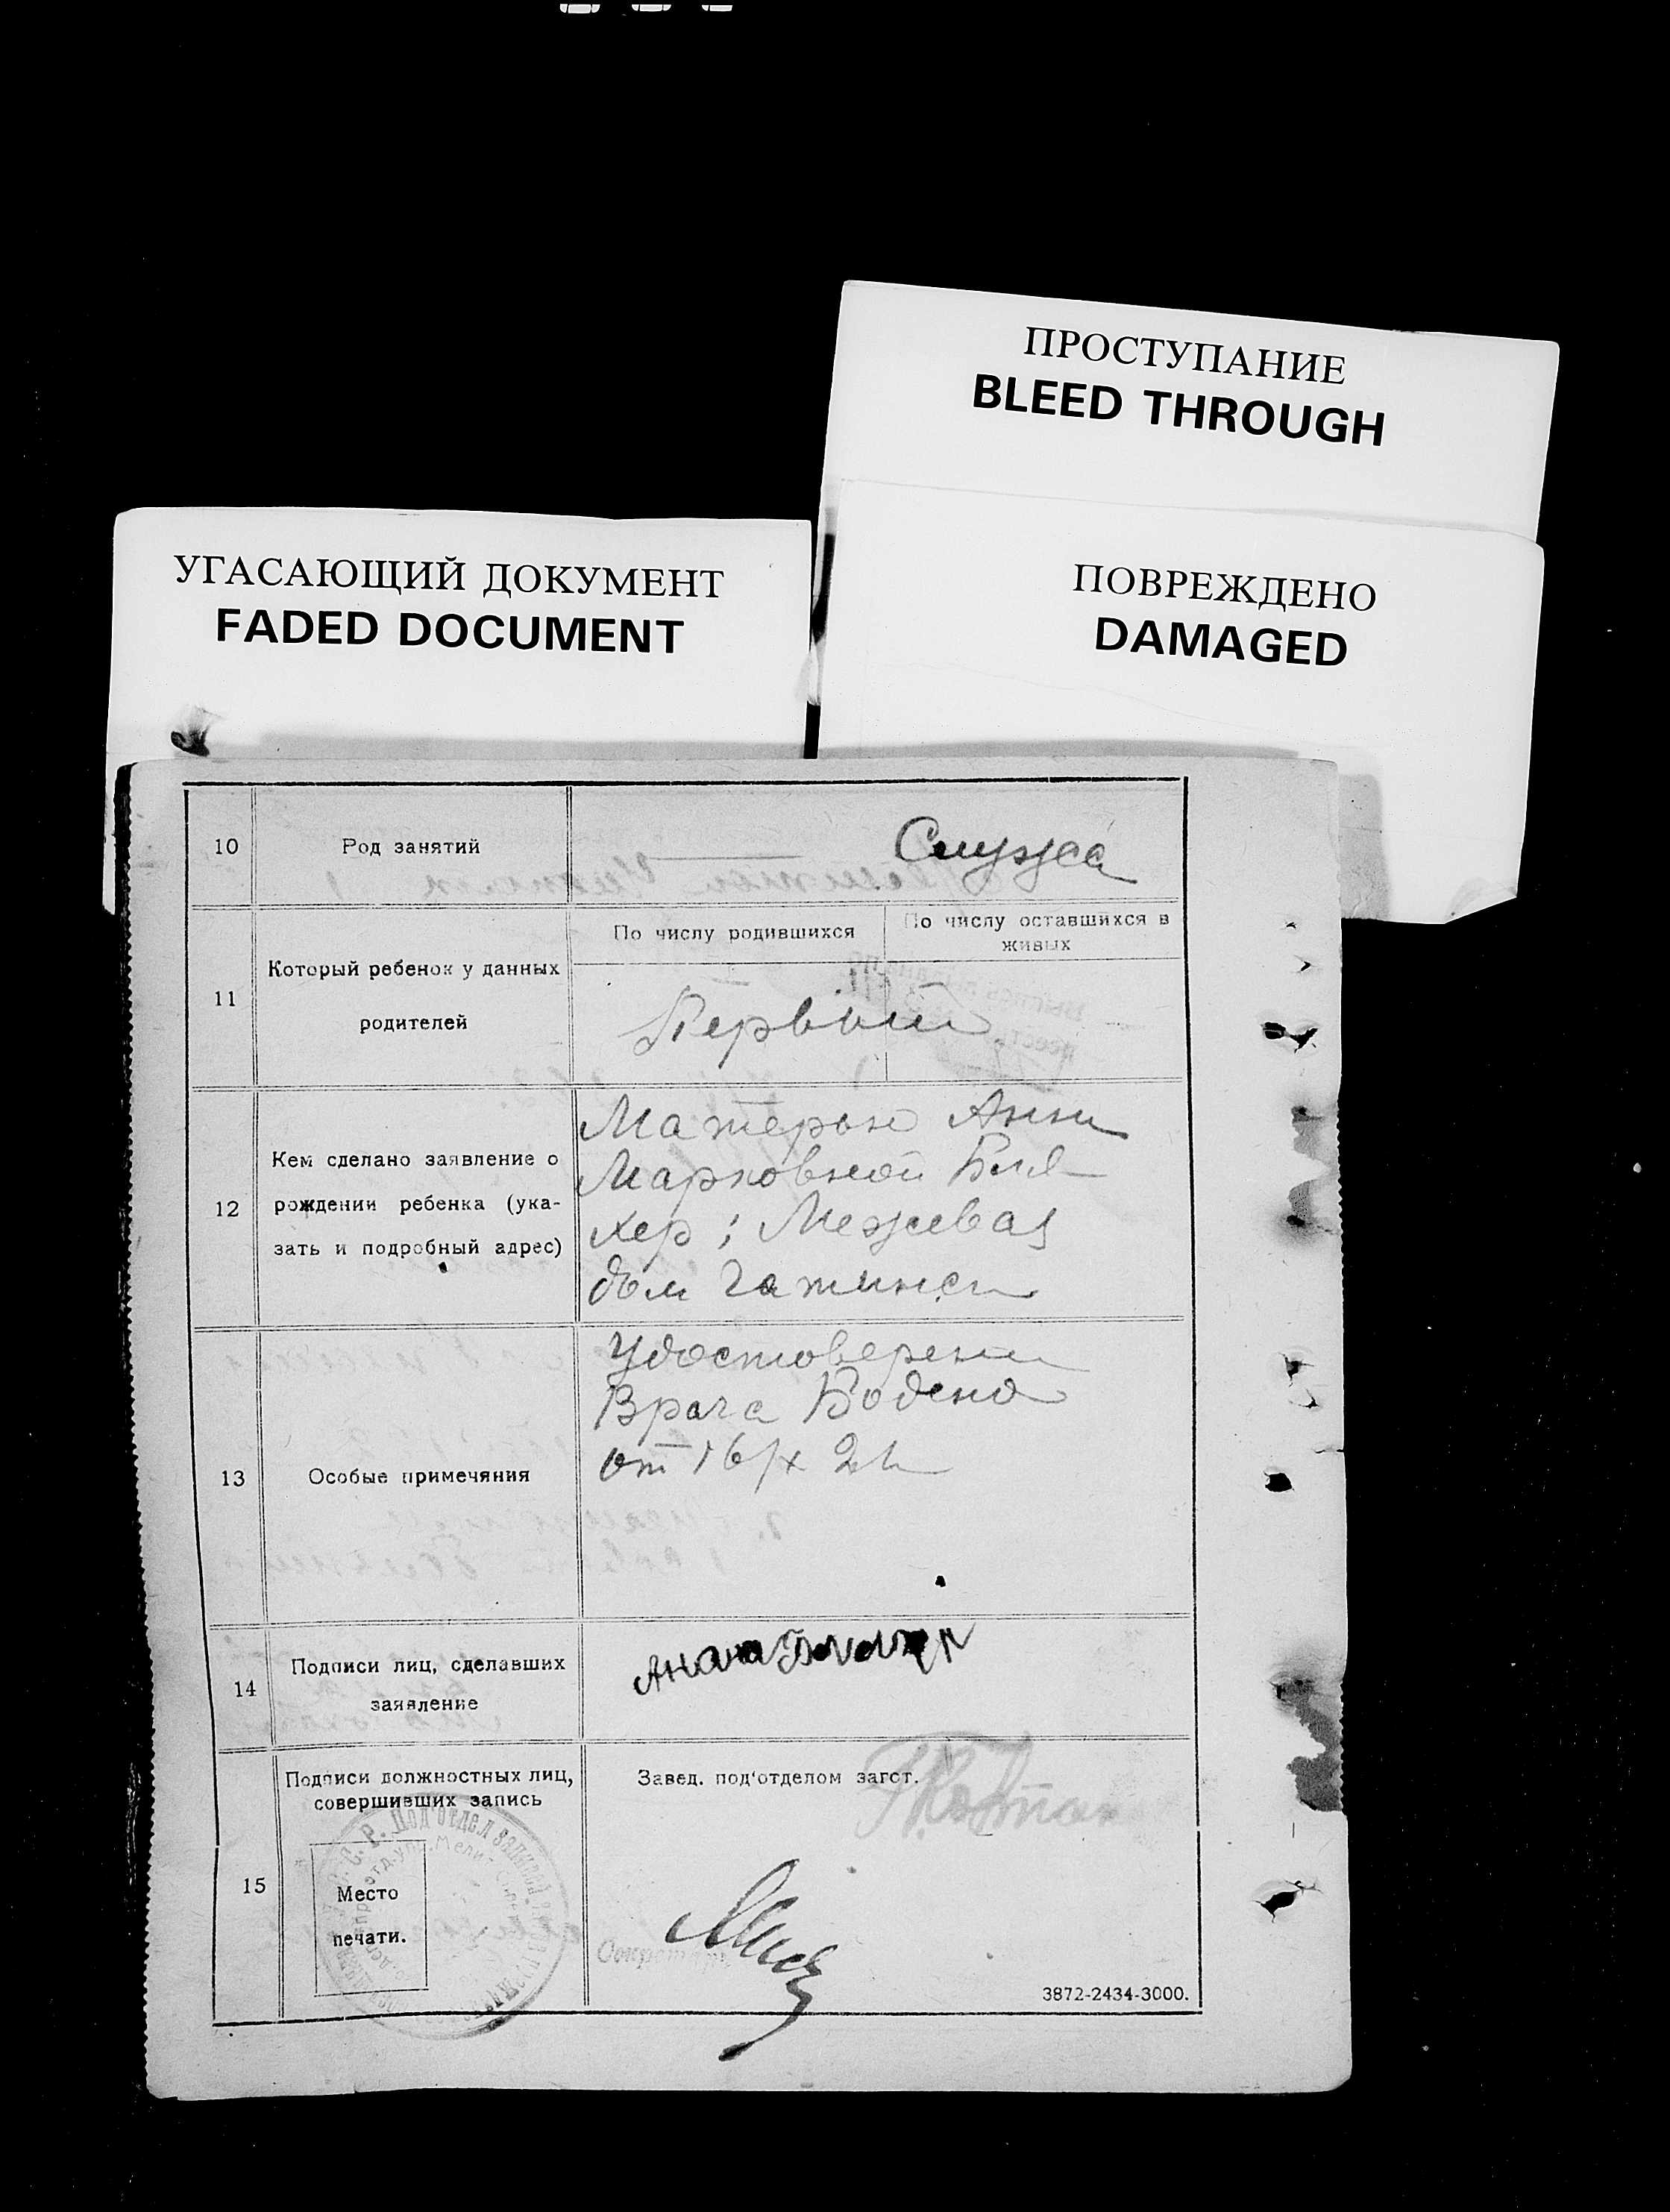 ПРОСТУПАНИЕ
BLEED THROUGH
УГАСАЮЩИЙ ДОКУМЕНТ
FADED DOCUMENT
ПОВРЕЖДЕНО
DAMAGED
10
Род занятий
Служба
11
Который ребенок у данных
родителей
По числу родившихся
По числу оставшихся в
живых
Первый
12
Кем сделано заявление о
рождении ребенка (ука-
зать и подробный адрес)
Матерью Анн
Марковной
хер; Межевая
дом
13
Особые примечяния
Удостоверени
Врача
от 16/х
14
Подписи лиц, сделавших
заявление
Анна
15
Подписи должностных лиц,
совершивших запись
Место
печати.
Завед. под'отделом загст.
3872-2434-3000.